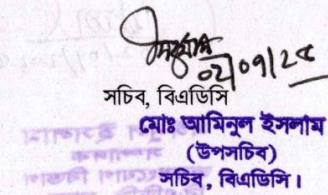 ০২/০৭/২৫
সচিব, বিএডিসি
মোঃ আমিনুল ইসলাম
(উপসচিব)
সচিব, বিএডিসি।